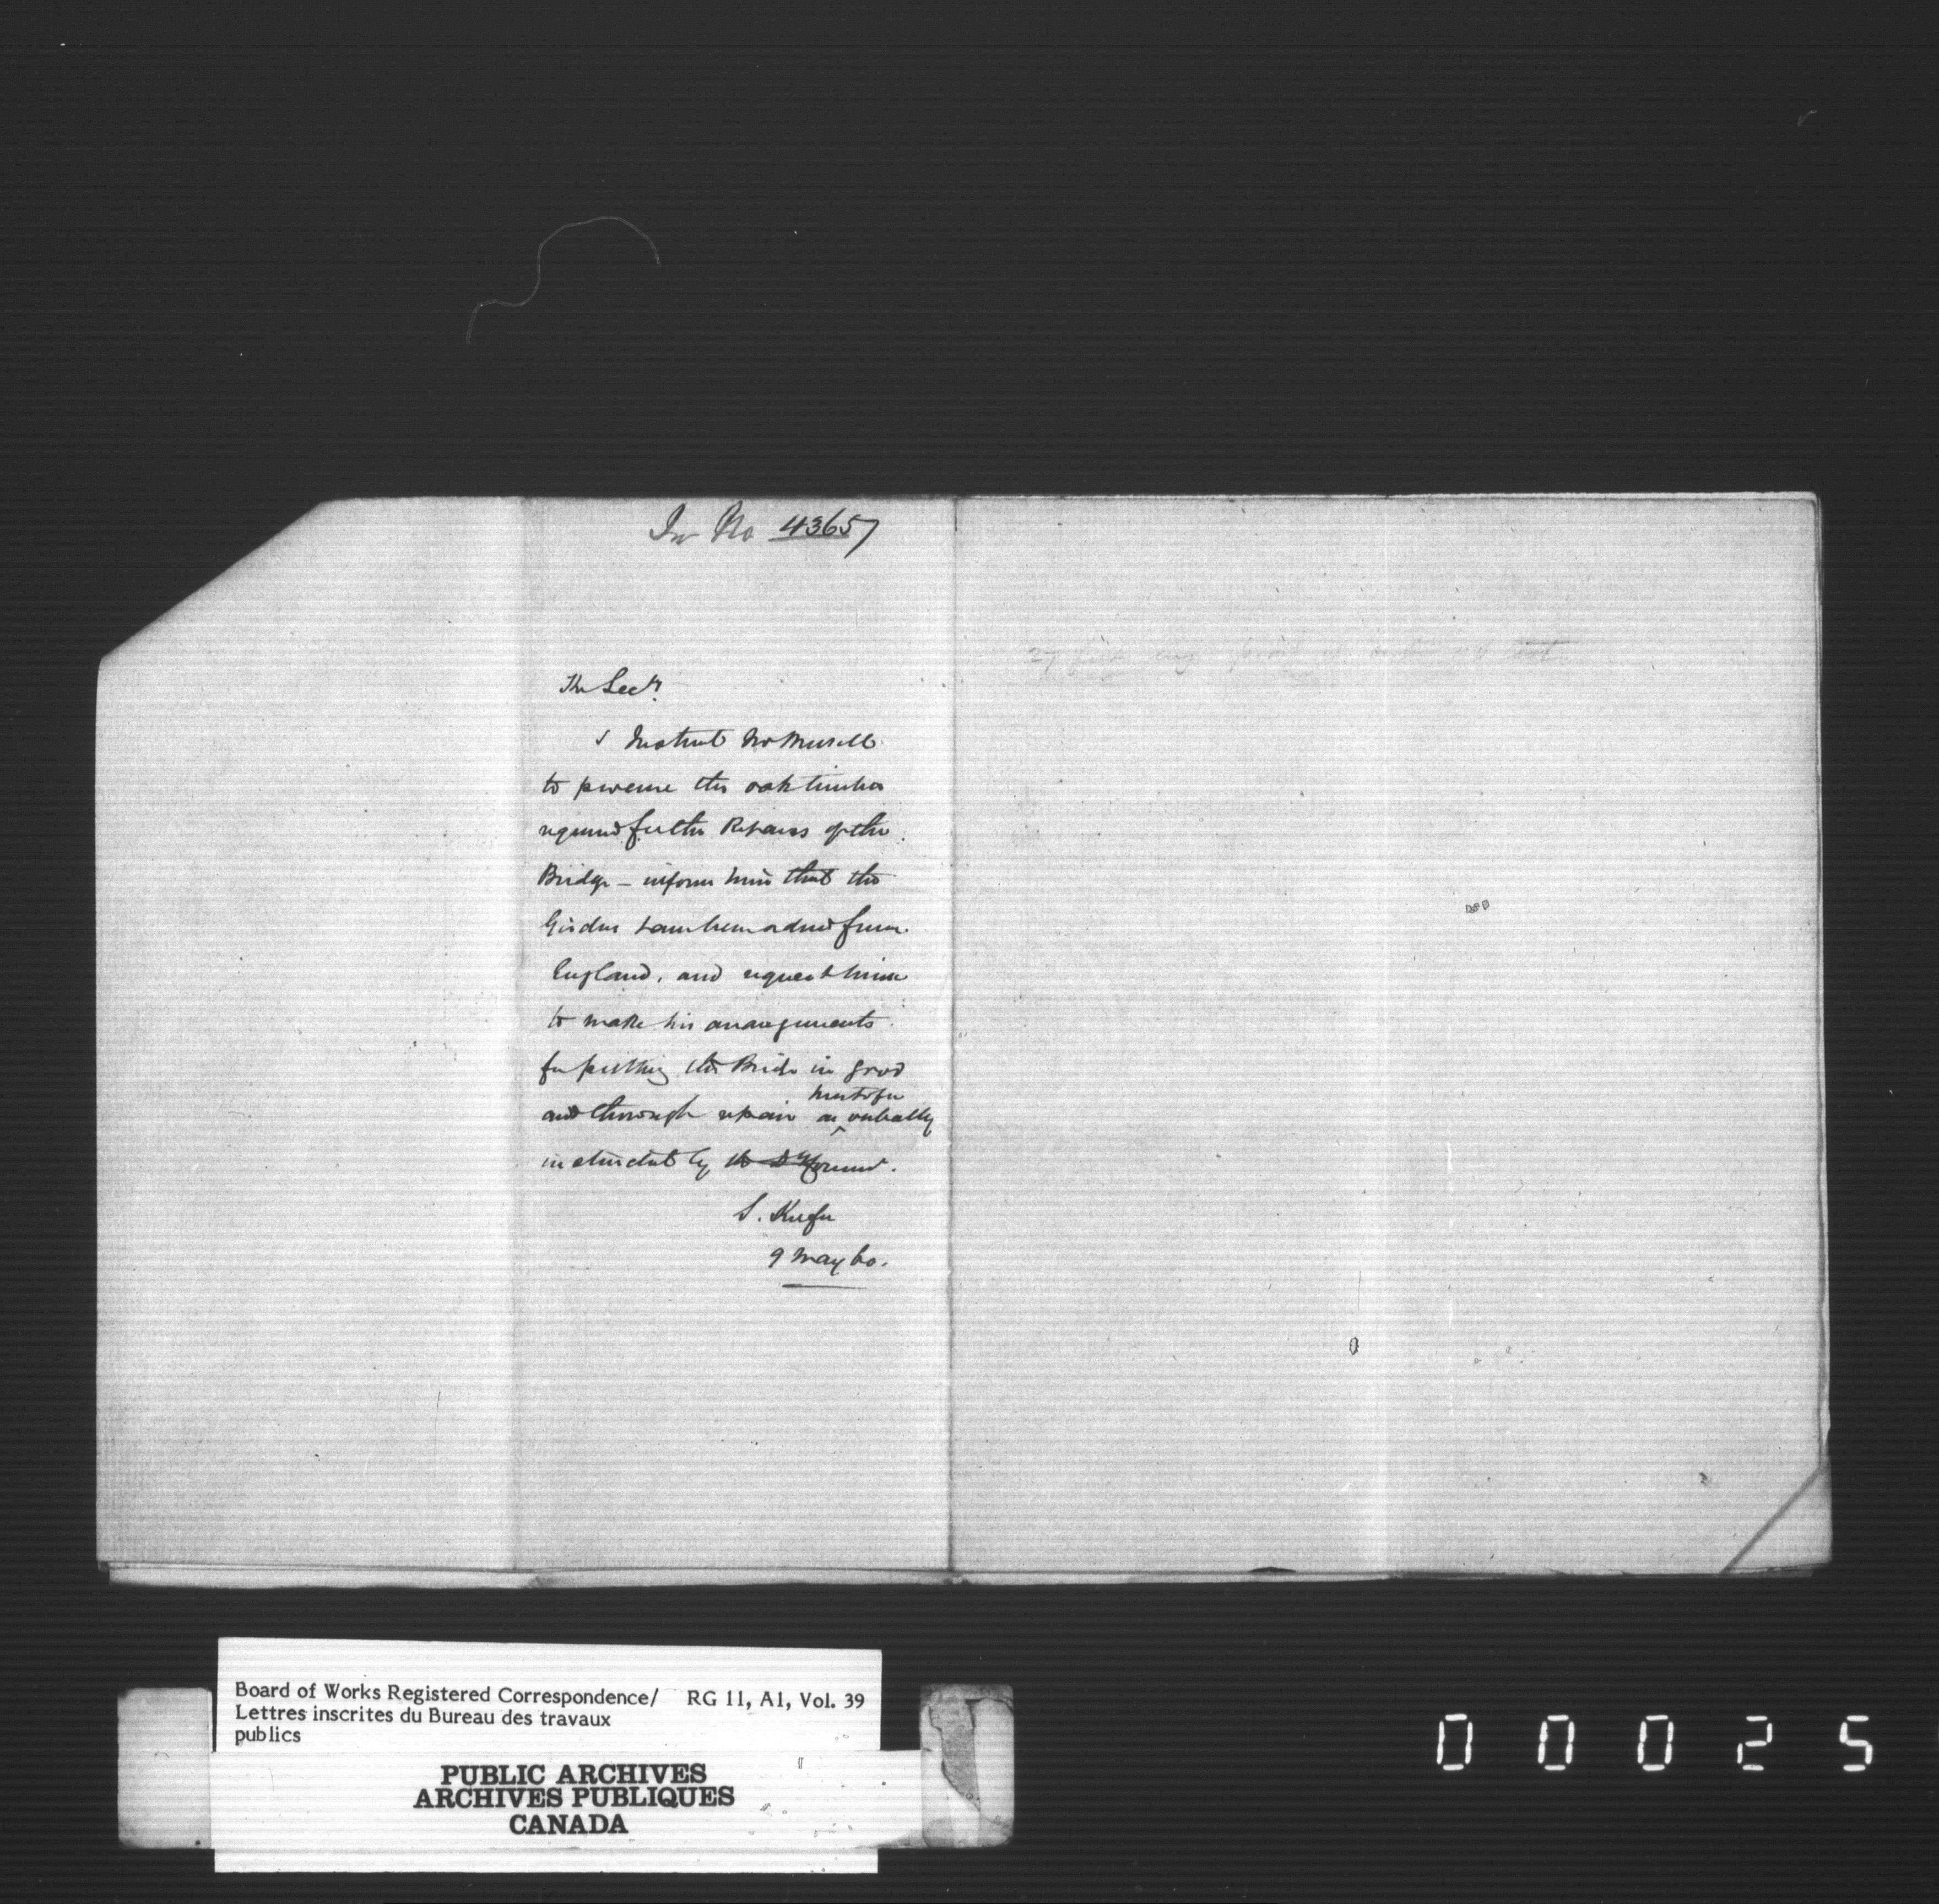 In No 43657
The Secy.
Instruct Mr Merrill
to procure the oak timber
required for the Repairs of the
Bridge – inform him that the
Girders have been ordered from
England, and request him
to make his arrangements
for putting the Bridge in good
heretofore
and thorough repair as verbally
instructed by
S. Keefer
9 May 60.
27 feet
Board of Works Registered Correspondence/ RG 11, A1, Vol. 39
Lettres inscrites du Bureau des travaux
publics
PUBLIC ARCHIVES
ARCHIVES PUBLIQUES
CANADA
0 0 0 2 5